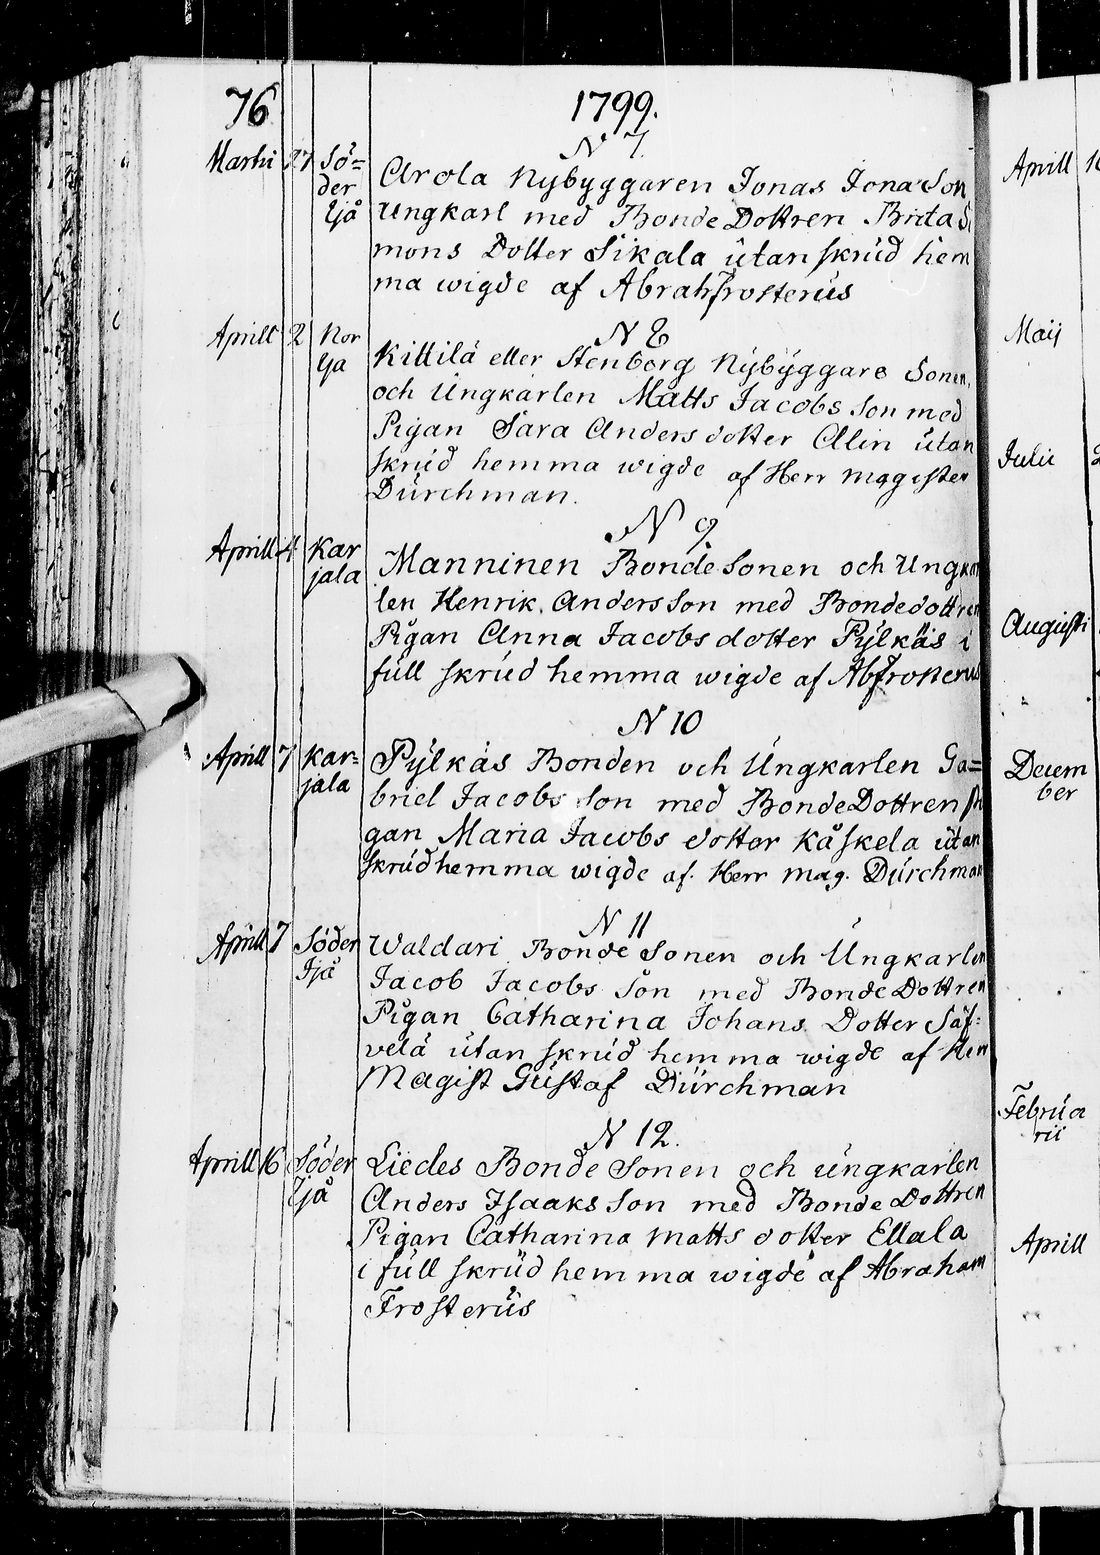 76
1799.
N 7.
Martii 27 Sö=
der
Ijå
Arola Nybyggaren Jonas Jona Son
Ungkarl med Bonde Dottren Brita Si
mons Dotter Sikala utan skrud hem
ma wigde af Abrah Frosterus
N 8
Aprill 2 Nor
Ija
Kittilä eller Stenborg Nybyggare Sonen
och Ungkarlen Matts Jacobs Son med
Pigan Sara Anders dotter Alin utan
skrud hemma wigde af Herr Magister
Durchman.
N 9
Aprill 4 Kar
jala
Manninen Bonde Sonen och Ungkar
len Henrik Anders Son med Bondedottren
Pigan Anna Jacobs dotter Pylkäs i
full skrud hemma wigde af Ab Frosterus
N 10
Aprill 7 Kar=
jala
Pylkäs Bonden och Ungkarlen Ga=
briel Jacobs Son med Bonde Dottren Pi
gan Maria Jacobs dotter Kåskela utan
skrud hemma wigde af Herr Mag. Durchman
N 11
Aprill 7 Söder
Ijå
Waldari Bonde Sonen och Ungkarlen
Jacob Jacobs Son med Bonde Dottren
Pigan Catharina Johans Dotter Säf=
velä utan skrud hemma wigde af Herr
Magist Gustaf Durchman
N 12.
Aprill 16 Söder
Ijå
Liedes Bonde Sonen och ungkarlen
Anders Isaaks Son med Bonde Dottren
Pigan Catharina Matts dotter Ellala
i full skrud hemma wigde af Abraham
Frosterus
Aprill
Maij
Julii
Augusti
Decem
ber
Februa
rii
Aprill